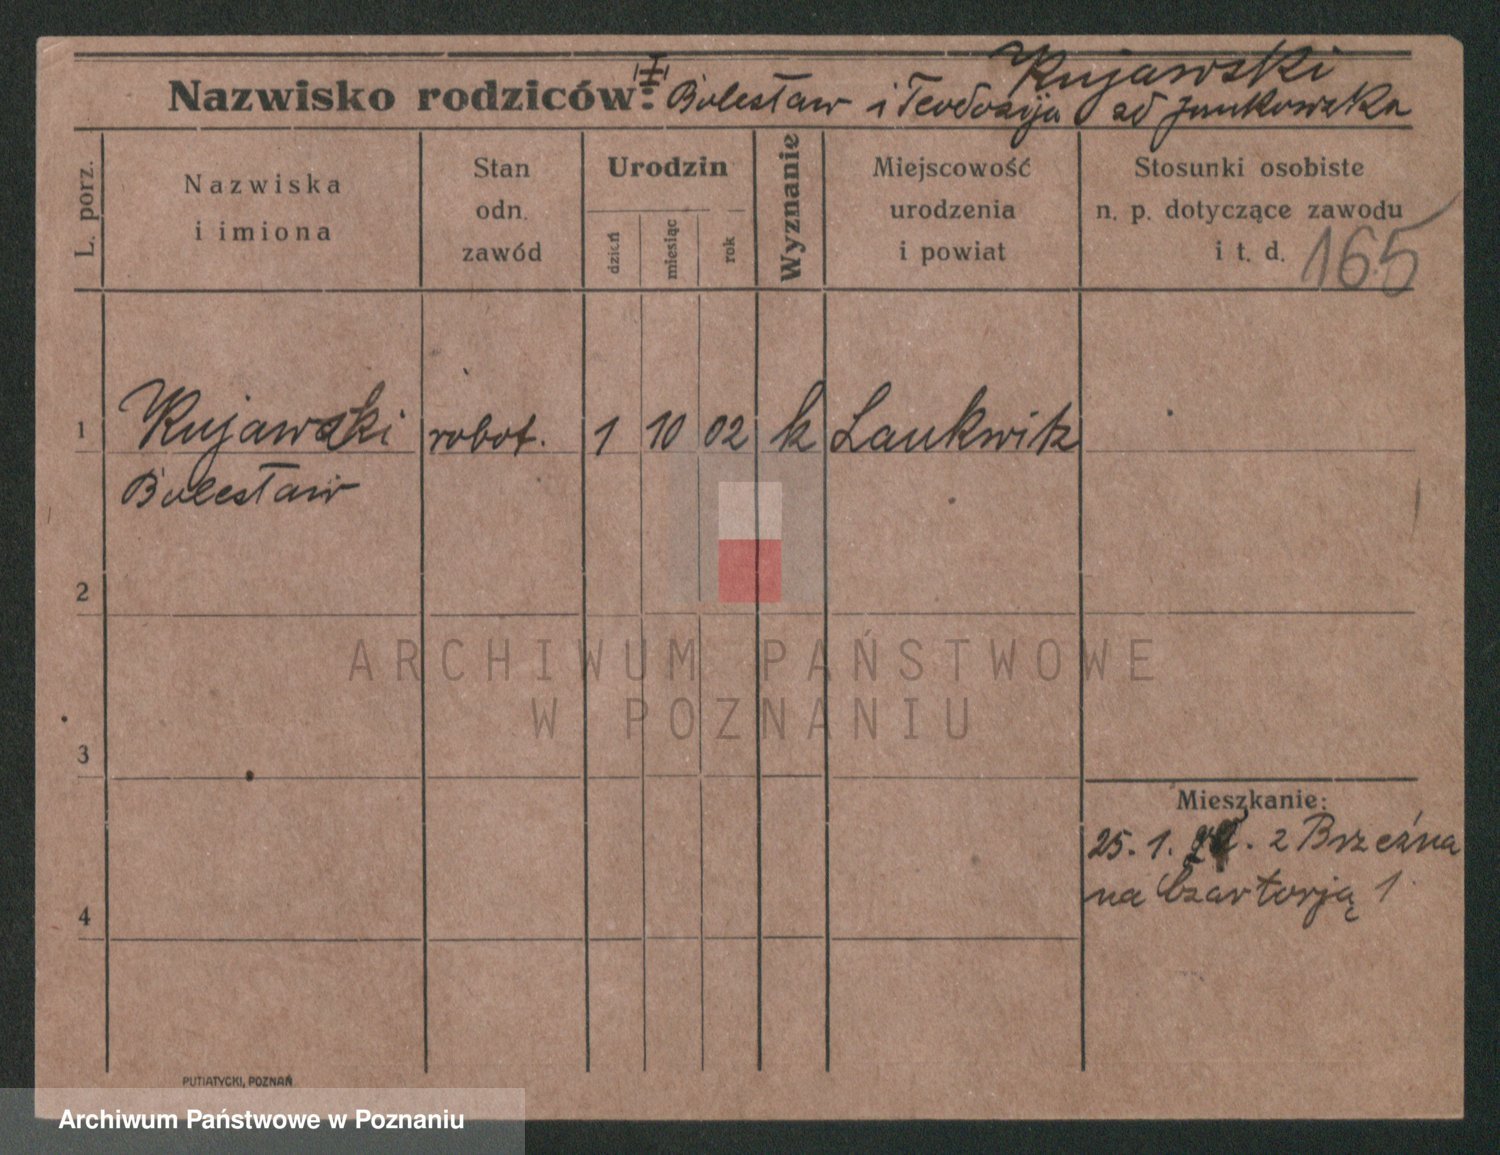 Kujawski
Nazwisko rodziców: Bolesław i Teodozyja zd Jankowska
L. porz.
Nazwiska
i imiona
Stan
odn.
zawód
Urodzin
dzień
miesiąc
rok
Wyznanie
Miejscowość
urodzenia
i powiat
Stosunki osobiste
n. p. dotyczące zawodu
i t. d.
165
1 Kujawski robot. 1 10 02 k Lankwitz
Bolesław
2
3
4
Mieszkanie:
25. 1. z Brzeźna
na Czartorją 1
PUTIATYCKI, POZNAŃ
ARCHIWUM PAŃSTWOWE
W POZNANIU
Archiwum Państwowe w Poznaniu